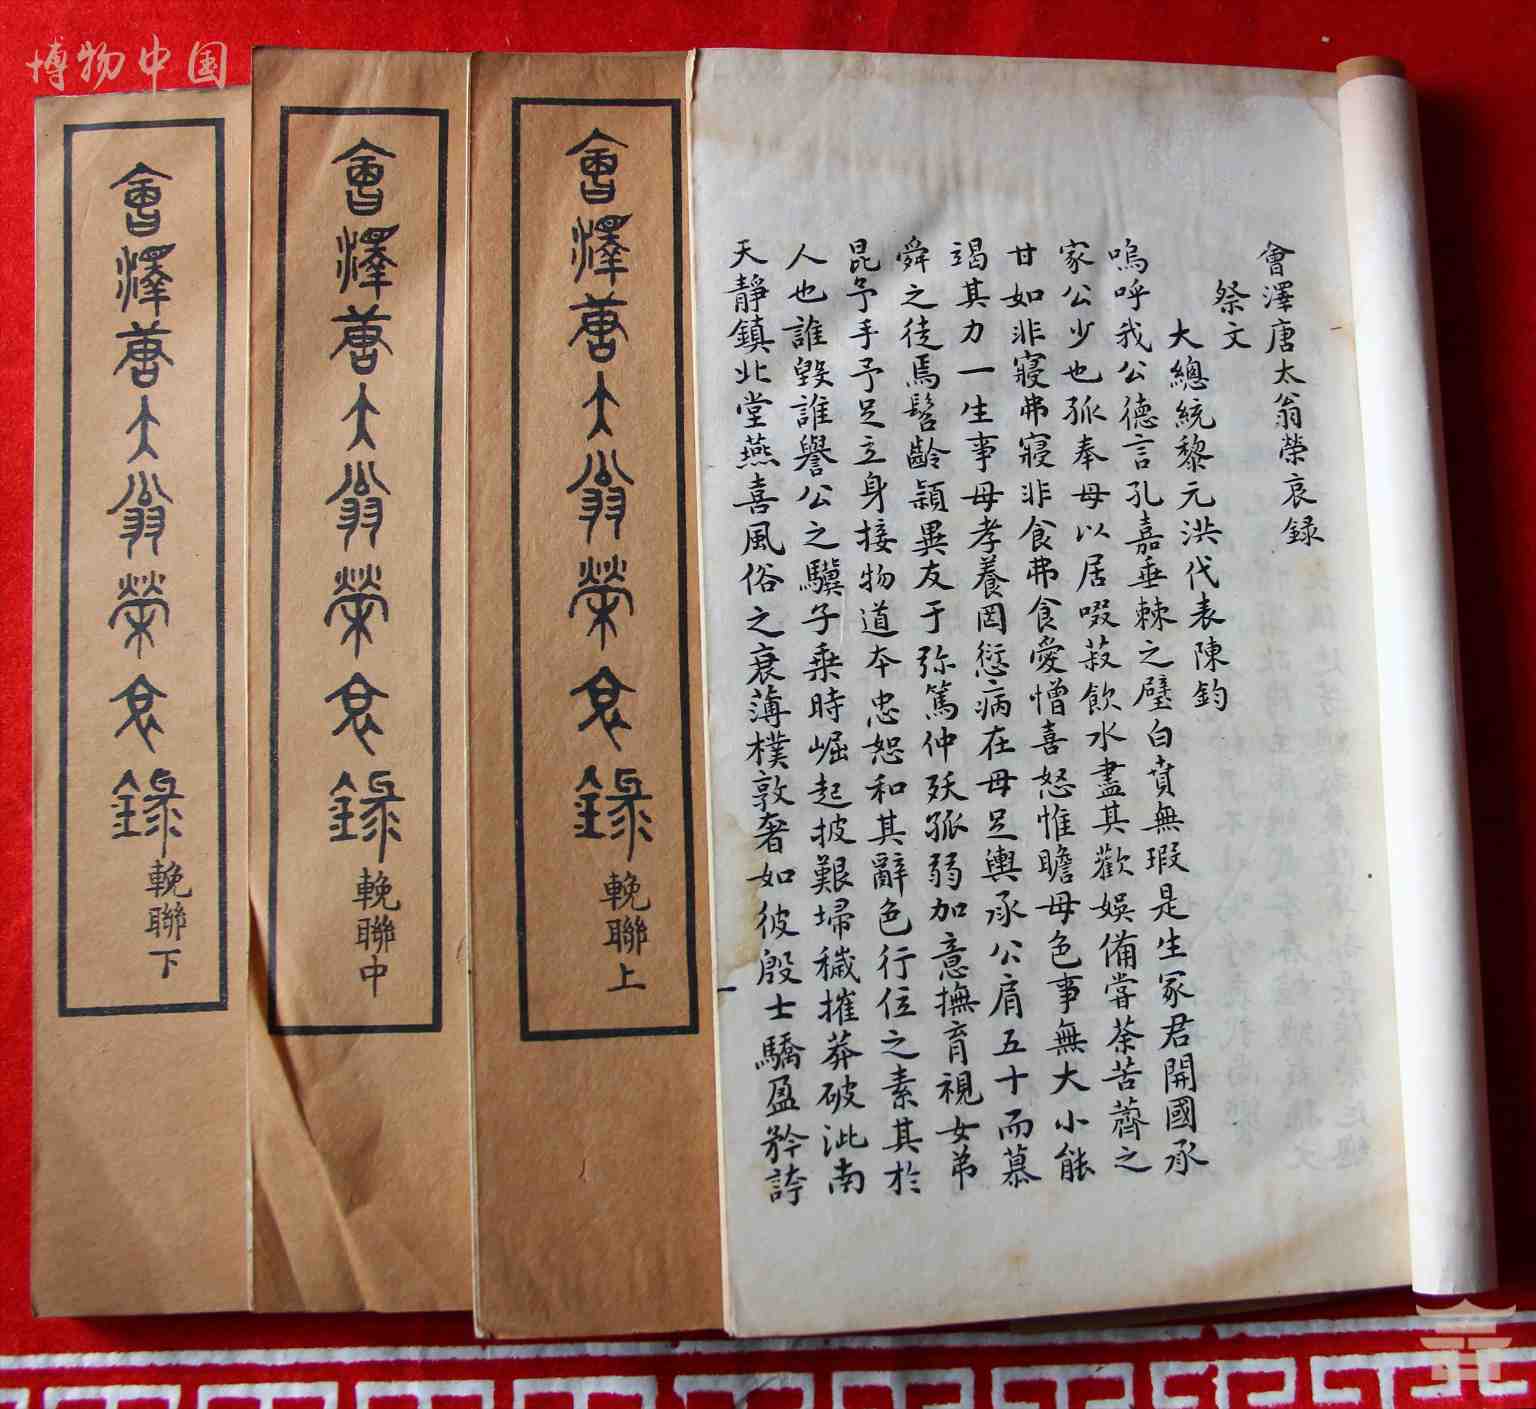 博物中国
會澤唐太翁榮哀録
祭文
大總統黎元洪代表陳鈞
嗚呼我公德言孔嘉垂棘之璧白賁無瑕是生冢君開國承
家公少也孤奉母以居啜菽飲水盡其歡娛備嘗荼苦薺之
甘如非寢弗寢非食弗食愛憎喜怒惟瞻母色事無大小能
竭其力一生事母孝養罔愆病在母足輿承公肩五十而慕
舜之徒焉髫齡穎異友于弥篤仲殀孤弱加意撫育視女弟
昆予手予足立身接物道本忠恕和其辭色行位之素其於
人也誰毀誰譽公之驥子乘時崛起披艱埽穢摧莽破泚南
天靜鎮北堂燕喜風俗之衰薄樸敦奢如彼殷士驕盈矜誇
會澤唐太翁榮哀錄
輓聯上
會澤唐太翁榮哀錄
輓聯中
會澤唐太翁榮哀錄
輓聯下